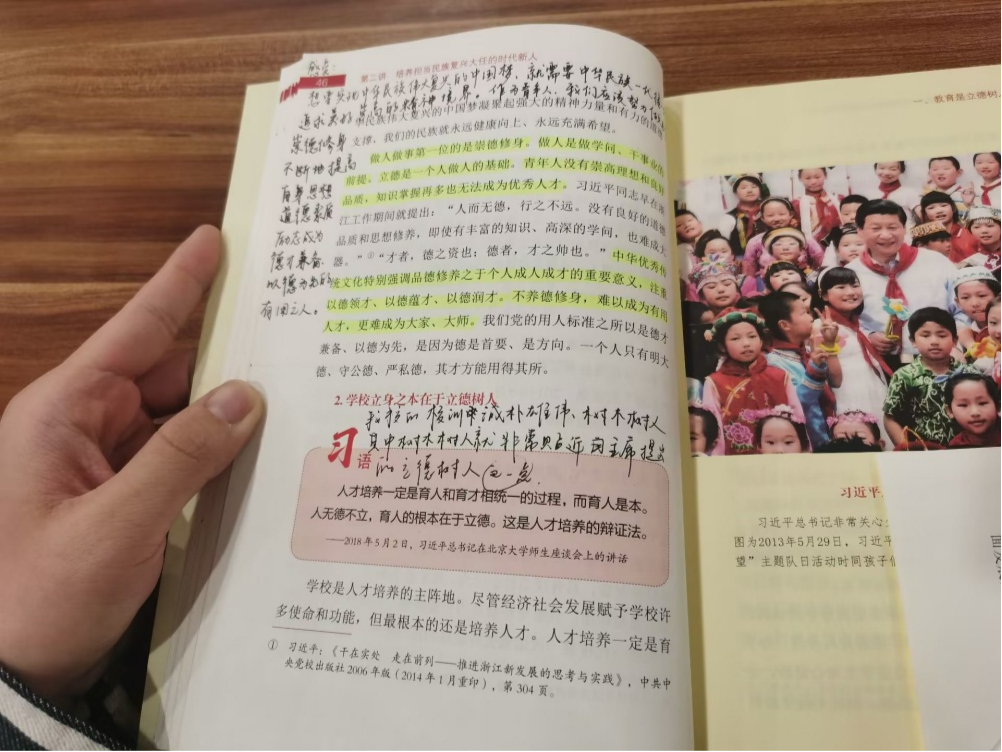 第二讲 培养担当民族复兴大任的时代新人
46
感受:
想要实现中华民族伟大复兴的中国梛，就需要中华民族一代接
追求美好崇高的精神境界。作为青年人，我们应该努力
民族伟大复兴的中国梦凝聚起强大的精神力量和有力的道德
支撑，我们的民族就永远健康向上、永远充满希望。
崇德修身
不断地提高
自身思想
道德素质
励志成为
德才兼备
以德为先的
有用之人。
做人做事第一位的是崇德修身。做人是做学问、干事业的
前提。立德是一个人做人的基础。青年人没有崇高理想和良好
品质，知识掌握再多也无法成为优秀人才。习近平同志早在浙
江工作期间就提出：“人而无德，行之不远。没有良好的道德
品质和思想修养，即使有丰富的知识、高深的学问，也难成大
器。”①“才者，德之资也；德者，才之帅也。”中华优秀传
统文化特别强调品德修养之于个人成人成才的重要意义，注重
以德领才、以德蕴才、以德润才。不养德修身，难以成为有用
人才，更难成为大家、大师。我们党的用人标准之所以是德才
兼备、以德为先，是因为德是首要、是方向。一个人只有明大
德、守公德、严私德，其才方能用得其所。
2. 学校立身之本在于立德树人
我校的校训申诚朴雄伟、树木树人
其中树木树人就非常贴近习主席提出
的立德树人这一点。
习语
人才培养一定是育人和育才相统一的过程，而育人是本。
人无德不立，育人的根本在于立德。这是人才培养的辩证法。
——2018年5月2日，习近平总书记在北京大学师生座谈会上的讲话
学校是人才培养的主阵地。尽管经济社会发展赋予学校许
多使命和功能，但最根本的还是培养人才。人才培养一定是育
① 习近平：《干在实处 走在前列——推进浙江新发展的思考与实践》，中共中
央党校出版社2006年版（2014年1月重印），第304页。
一、教育是立德树人
习近平
习近平总书记非常关心少
图为2013年5月29日，习近平
望”主题队日活动时同孩子们